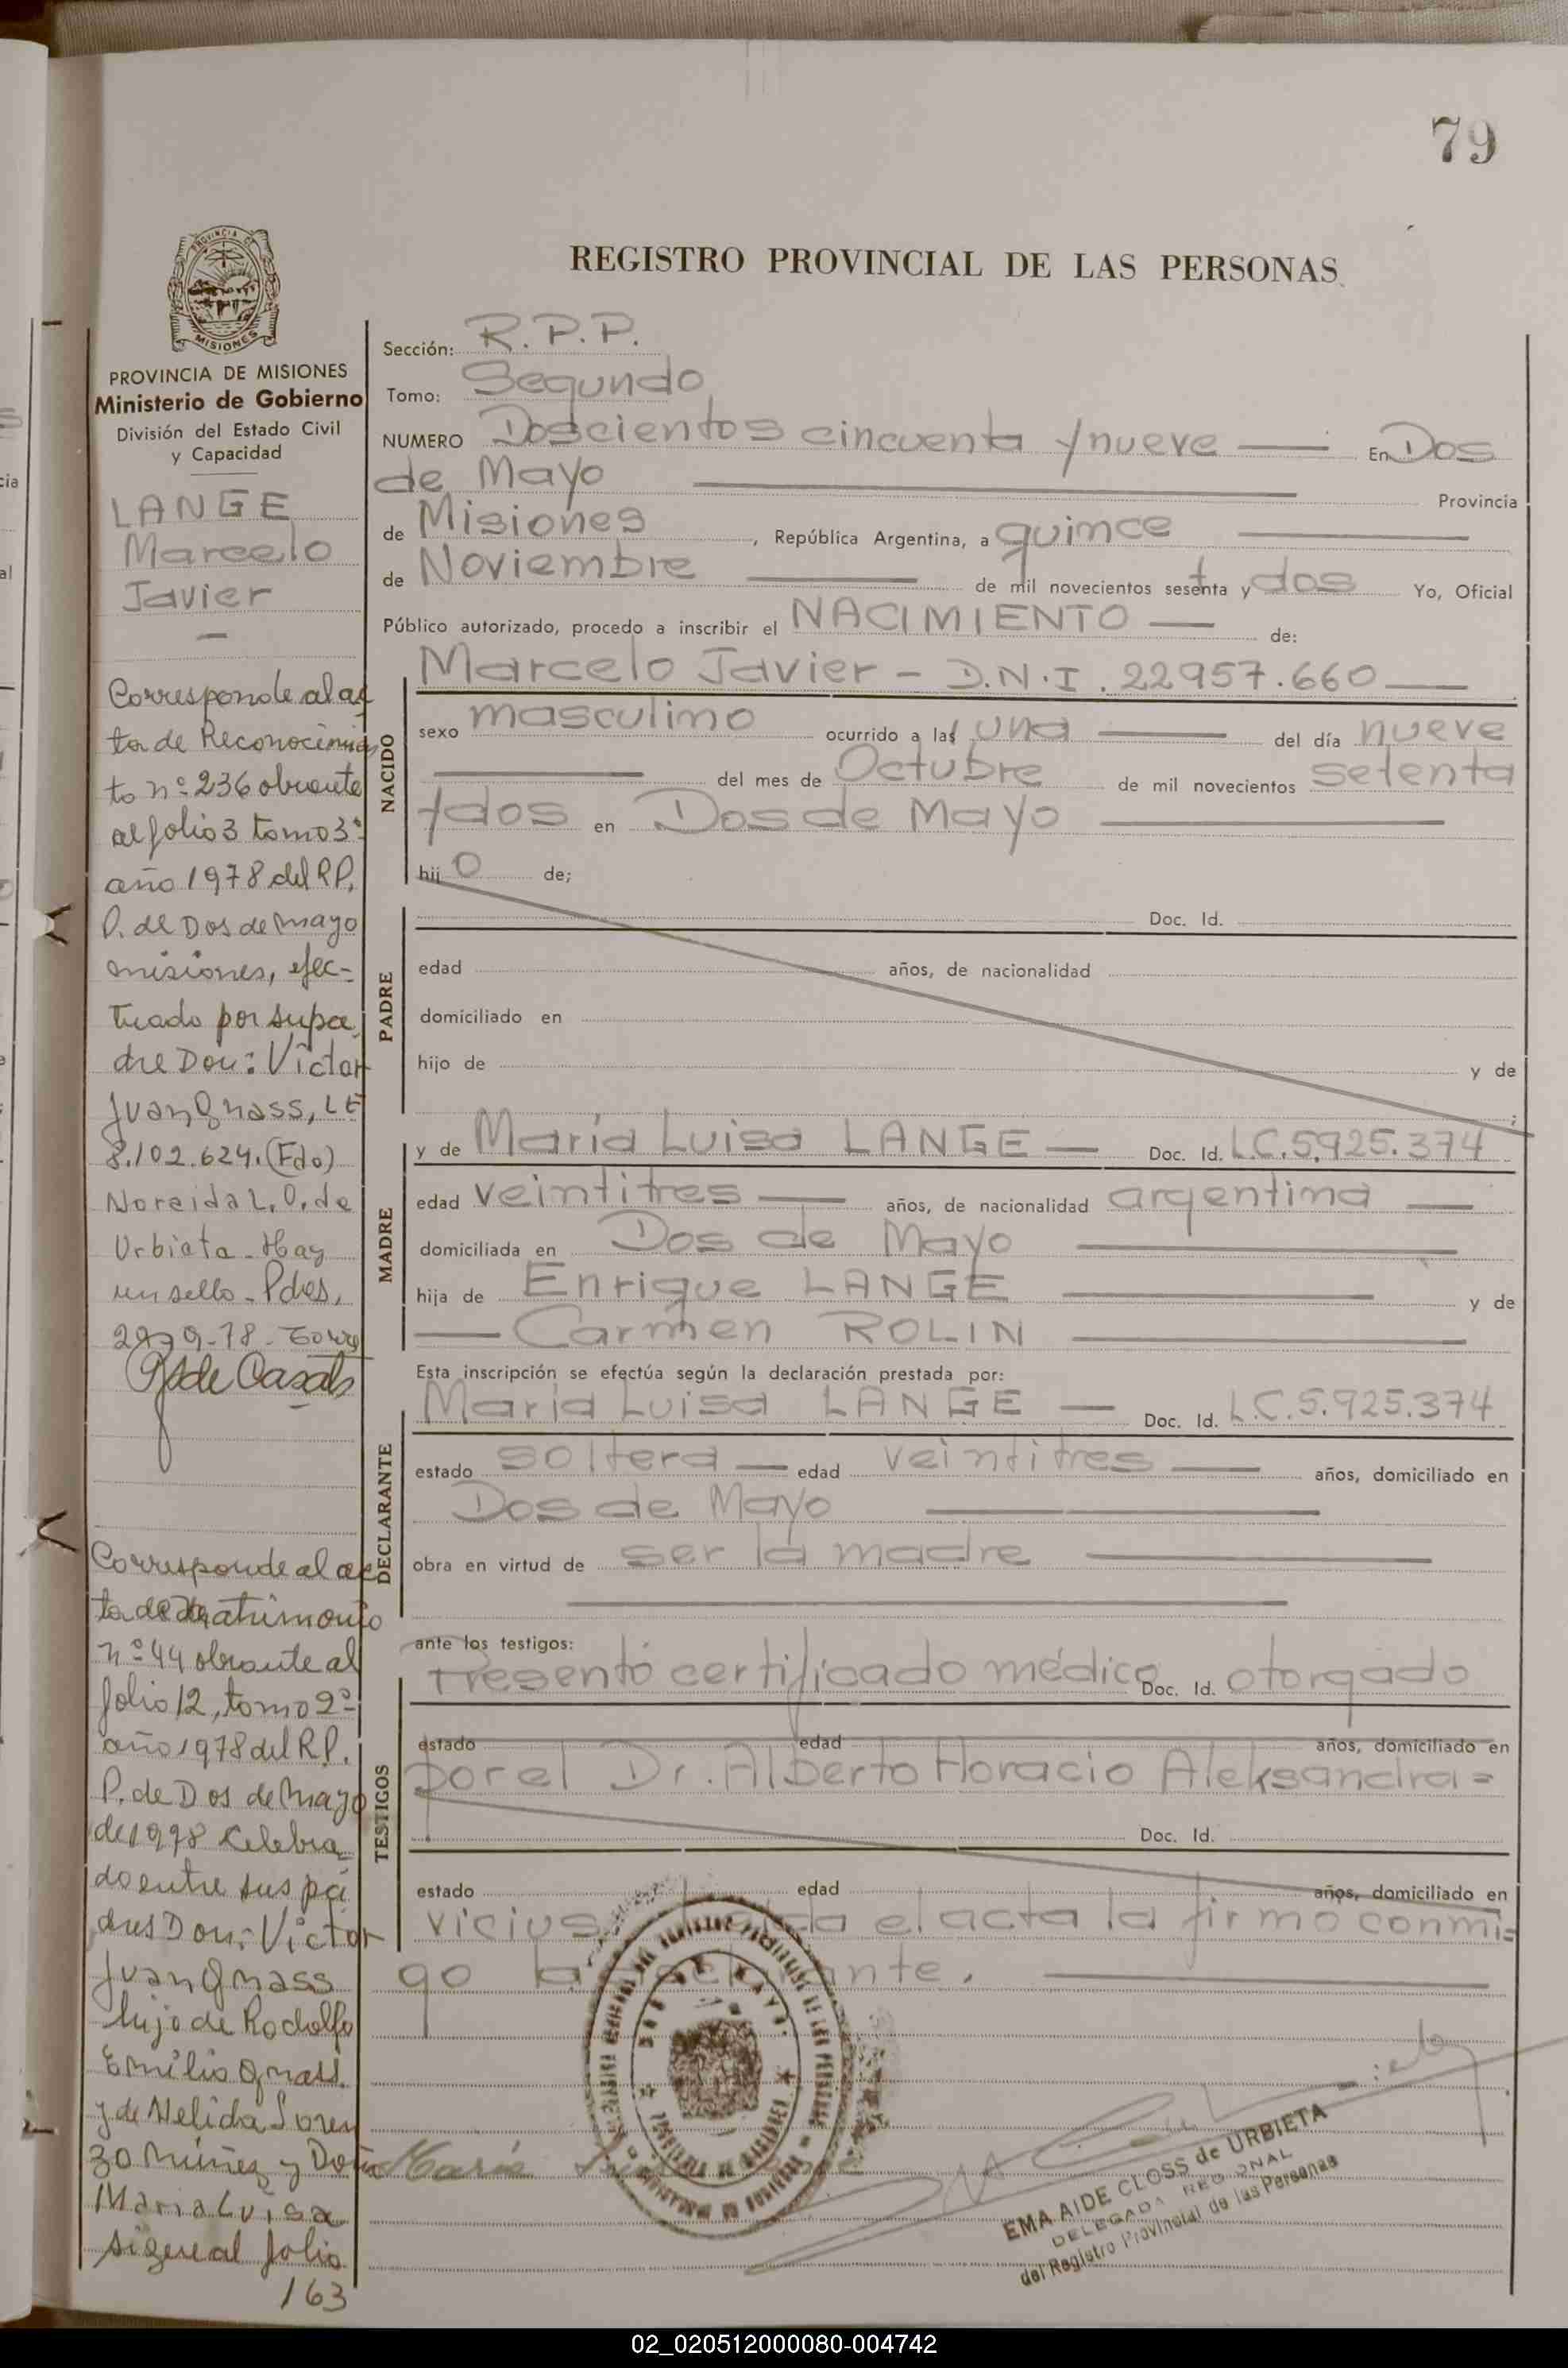 79
REGISTRO PROVINCIAL DE LAS PERSONAS
PROVINCIA DE
MISIONES
PROVINCIA DE MISIONES
Ministerio de Gobierno
División del Estado Civil
y Capacidad
LANGE
Marcelo
Javier
Corresponde al ac
ta de Reconocimien
to nº 236 obrante
al folio 3 tomo 3º
año 1978 del R.P.
P. de Dos de mayo
misiones, efec-
tuado por su pa
dre Don: Víctor
Juan Gnass, LE
8.102.624. (Fdo)
Noreida L. O. de
Urbieta - Hay
un sello - Pdas,
29-9-78 -
de Casals
Corresponde al ac
ta de matrimonio
nº 44 obrante al
folio 12, tomo 2º
año 1978 del R.P.
P. de Dos de mayo
de 1978 celebra
do entre sus pa
dres Don: Víctor
Juan Gnass
hijo de Rodolfo
Emilio Gnass
y de Nelida Loren
zo Núñez y Doña
Maria Luisa
sigue al folio
163
Sección: R.P.P.
Tomo: Segundo
NUMERO Doscientos cincuenta y nueve — En Dos
de Mayo — Provincia
de Misiones, República Argentina, a quince —
de Noviembre — de mil novecientos setenta y dos Yo, Oficial
Público autorizado, procedo a inscribir el NACIMIENTO — de:
NACIDO
Marcelo Javier - D.N.I. 22957.660 —
sexo masculino ocurrido a las una — del día nueve
— del mes de Octubre de mil novecientos setenta
y dos en Dos de Mayo —
hijo de;
PADRE
Doc. Id.
edad años, de nacionalidad
domiciliado en
hijo de y de
;
MADRE
y de María Luisa LANGE — Doc. Id. L.C. 5.925.374
edad veintitres — años, de nacionalidad argentina —
domiciliada en Dos de Mayo —
hija de Enrique LANGE — y de
— Carmen ROLIN —
Esta inscripción se efectúa según la declaración prestada por:
DECLARANTE
María Luisa LANGE — Doc. Id. L.C. 5.925.374
estado soltera — edad veintitres — años, domiciliado en
Dos de Mayo —
obra en virtud de ser la madre —
ante los testigos:
TESTIGOS
Presentó certificado médico Doc. Id. otorgado
estado edad años, domiciliado en
por el Dr. Alberto Horacio Aleksandra=
Doc. Id.
estado edad años, domiciliado en
vicius. el acta la firmo conmi=
go la
María
EMA AIDE CLOSS de URBIETA
DELEGADA REGIONAL
del Registro Provincial de las Personas
02_020512000080-004742